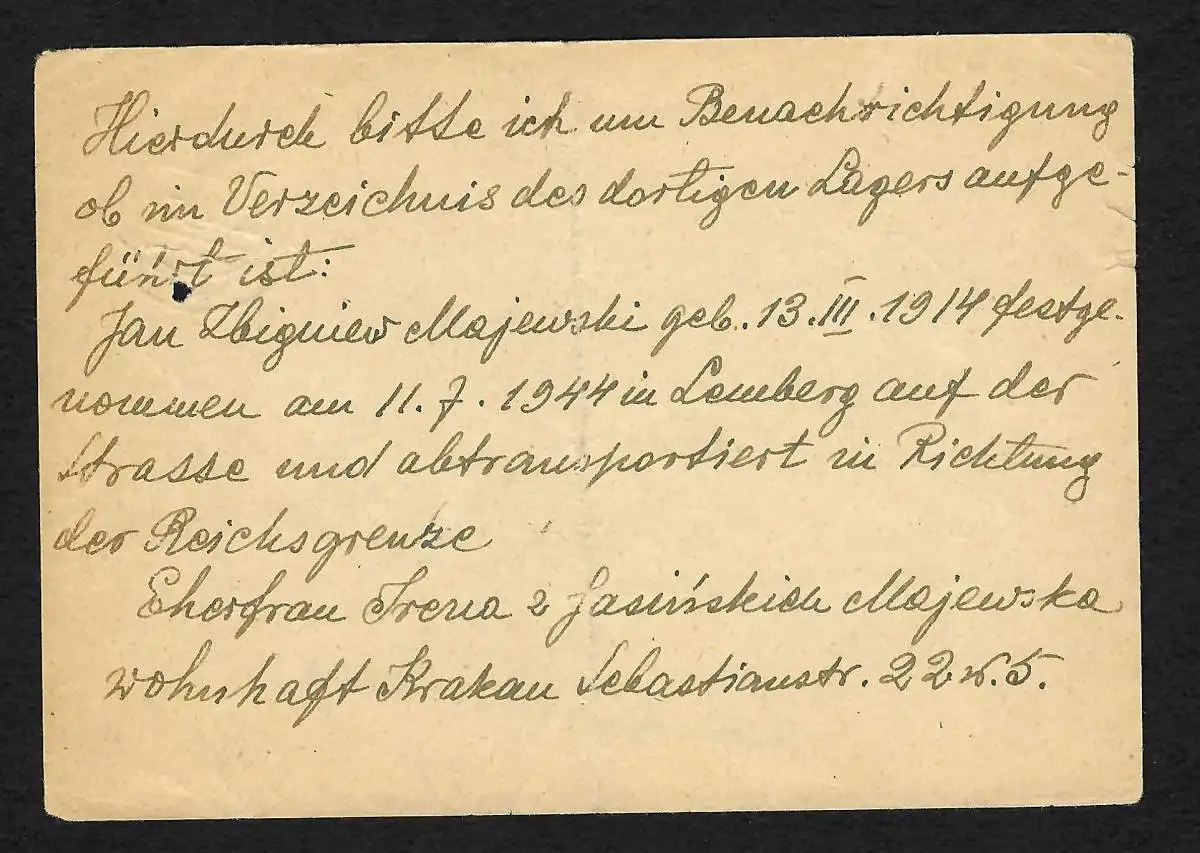 Hierdurch bitte ich um Benachrichtigung
ob im Verzeichnis des dortigen Lagers aufge-
führt ist:
Jan Zbigniew Majewski geb. 13.III.1914 festge-
nommen am 11.7.1944 in Lemberg auf der
Strasse und abtransportiert in Richtung
der Reichsgrenze
Eherfrau Irena z Jasińskich Majewska
wohnhaft Krakau Sebastianstr. 22 w. 5.